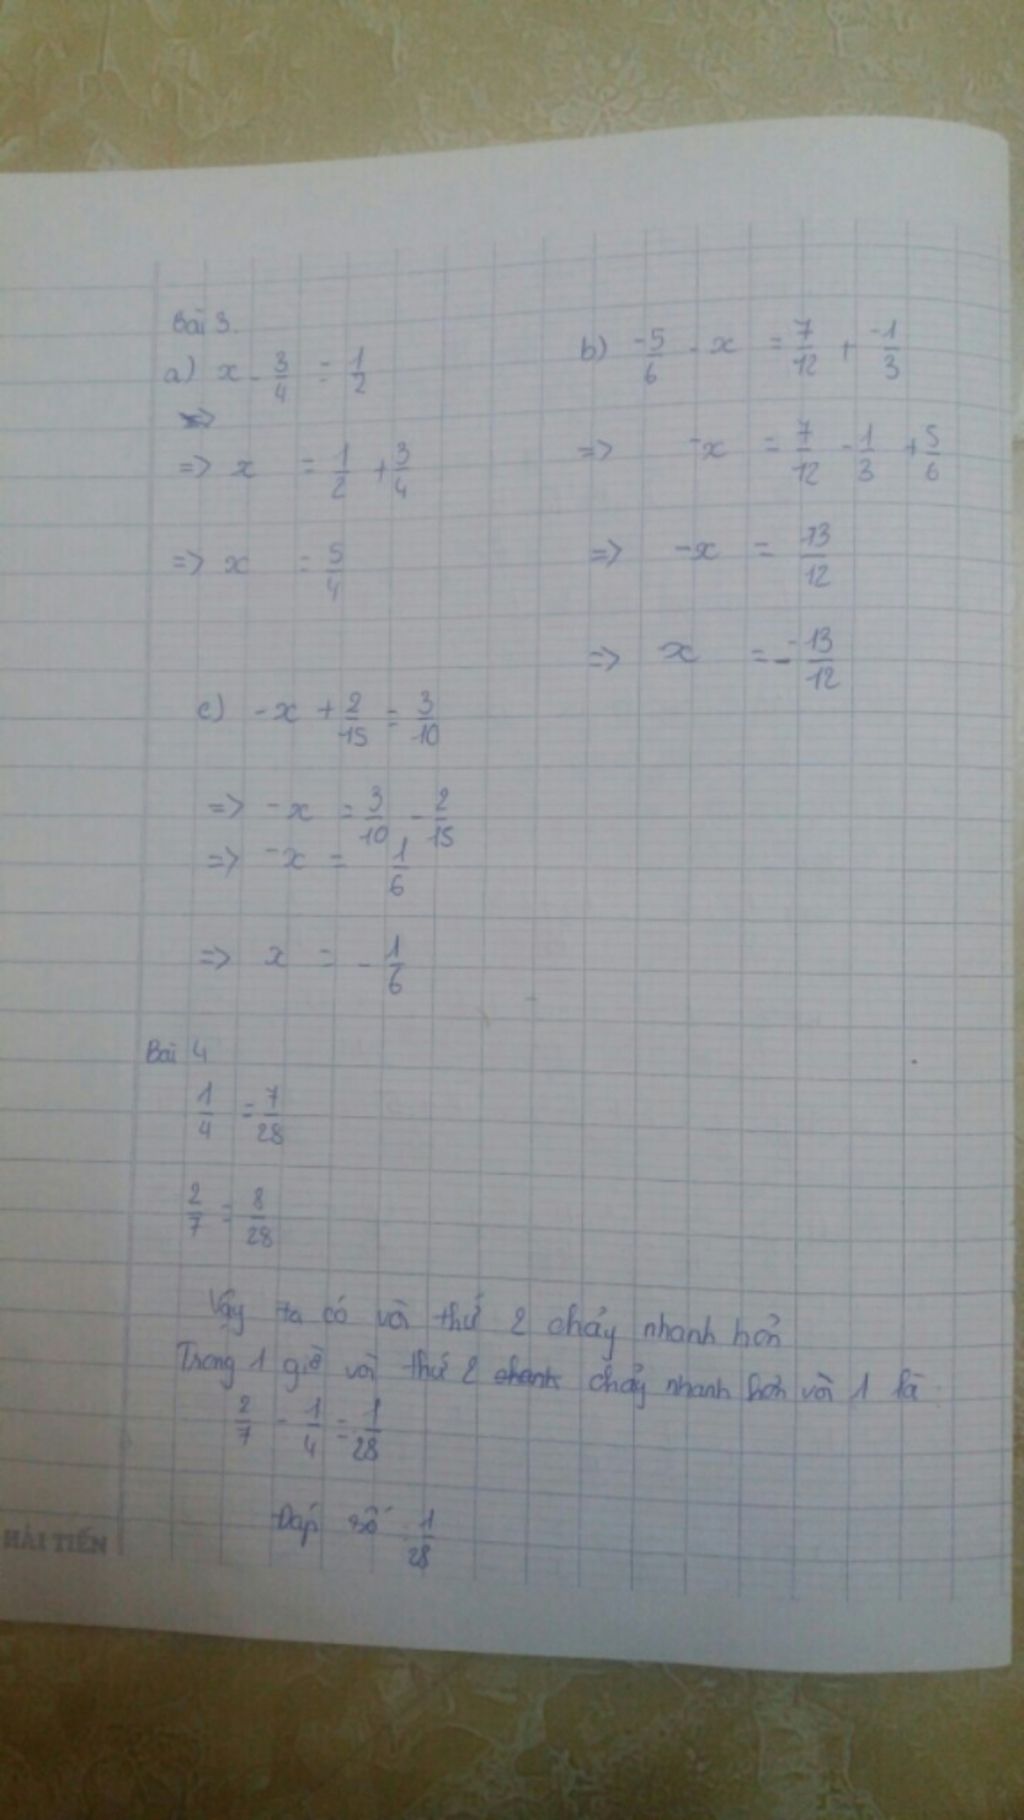 Bài 3
a) x - 3/4 = 1/2
=> x = 1/2 + 3/4
=> x = 5/4
b) -5/6 - x = 7/12 + -1/3
=> -x = 7/12 - 1/3 + 5/6
=> -x = 13/12
=> x = -13/12
c) -x + 2/15 = 3/10
=> -x = 3/10 - 2/15
=> -x = 1/6
=> x = -1/6
Bài 4
1/4 = 7/28
2/7 = 8/28
Vậy ta có vòi thứ 2 chảy nhanh hơn
Trong 1 giờ vòi thứ 2 chảy nhanh hơn vòi 1 là
2/7 - 1/4 = 1/28
Đáp số 1/28
HẢI TIẾN